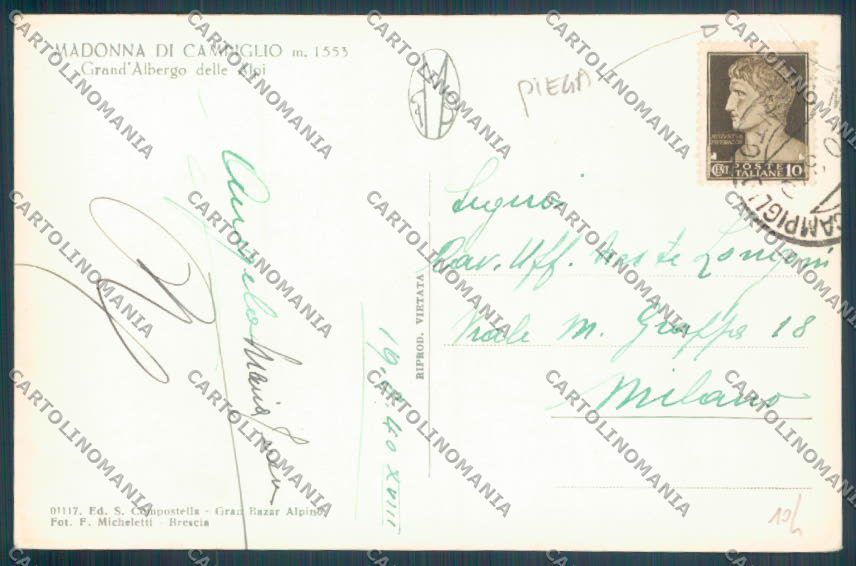 MADONNA DI CAMPIGLIO m. 1553
Grand'Albergo delle Alpi
PIEGA
POSTE
ITALIANE
CENT. 10
CAMPIGLI
Signori
Cav. Uff. Longoni
Viale M. Grappa 18
Milano
Angelo Maria
19. 8. 40 XVIII
RIPROD. VIETATA
01117. Ed. S. Compostella - Gran Bazar Alpino
Fot. F. Micheletti - Brescia
CARTOLINOMANIA